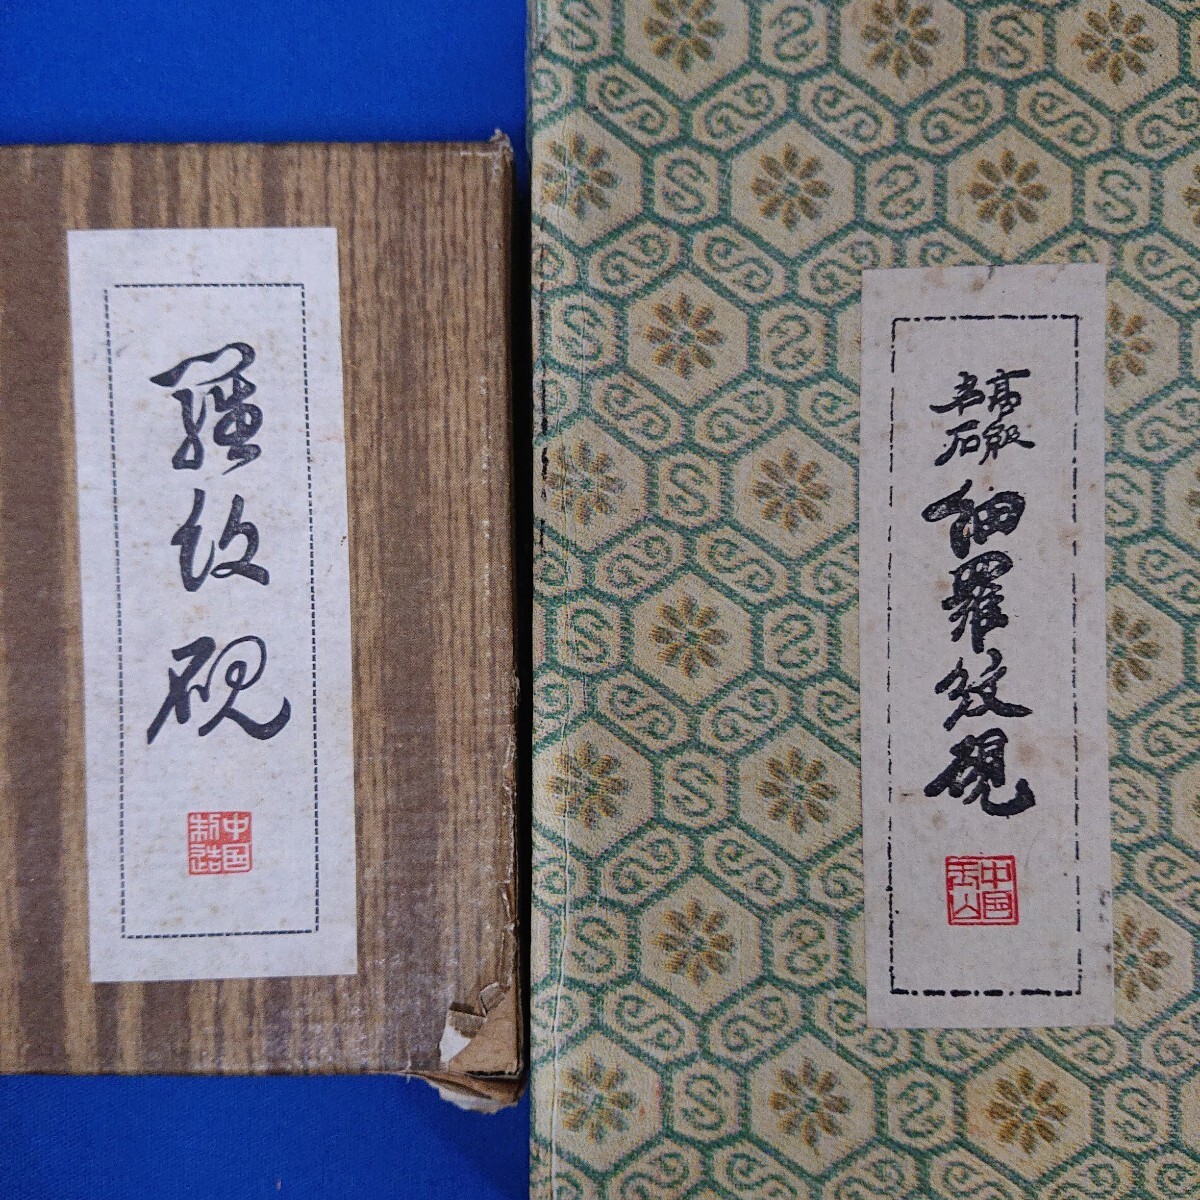 羅紋硯
中国
制造
高級
老石
細羅紋硯
中国
玉山